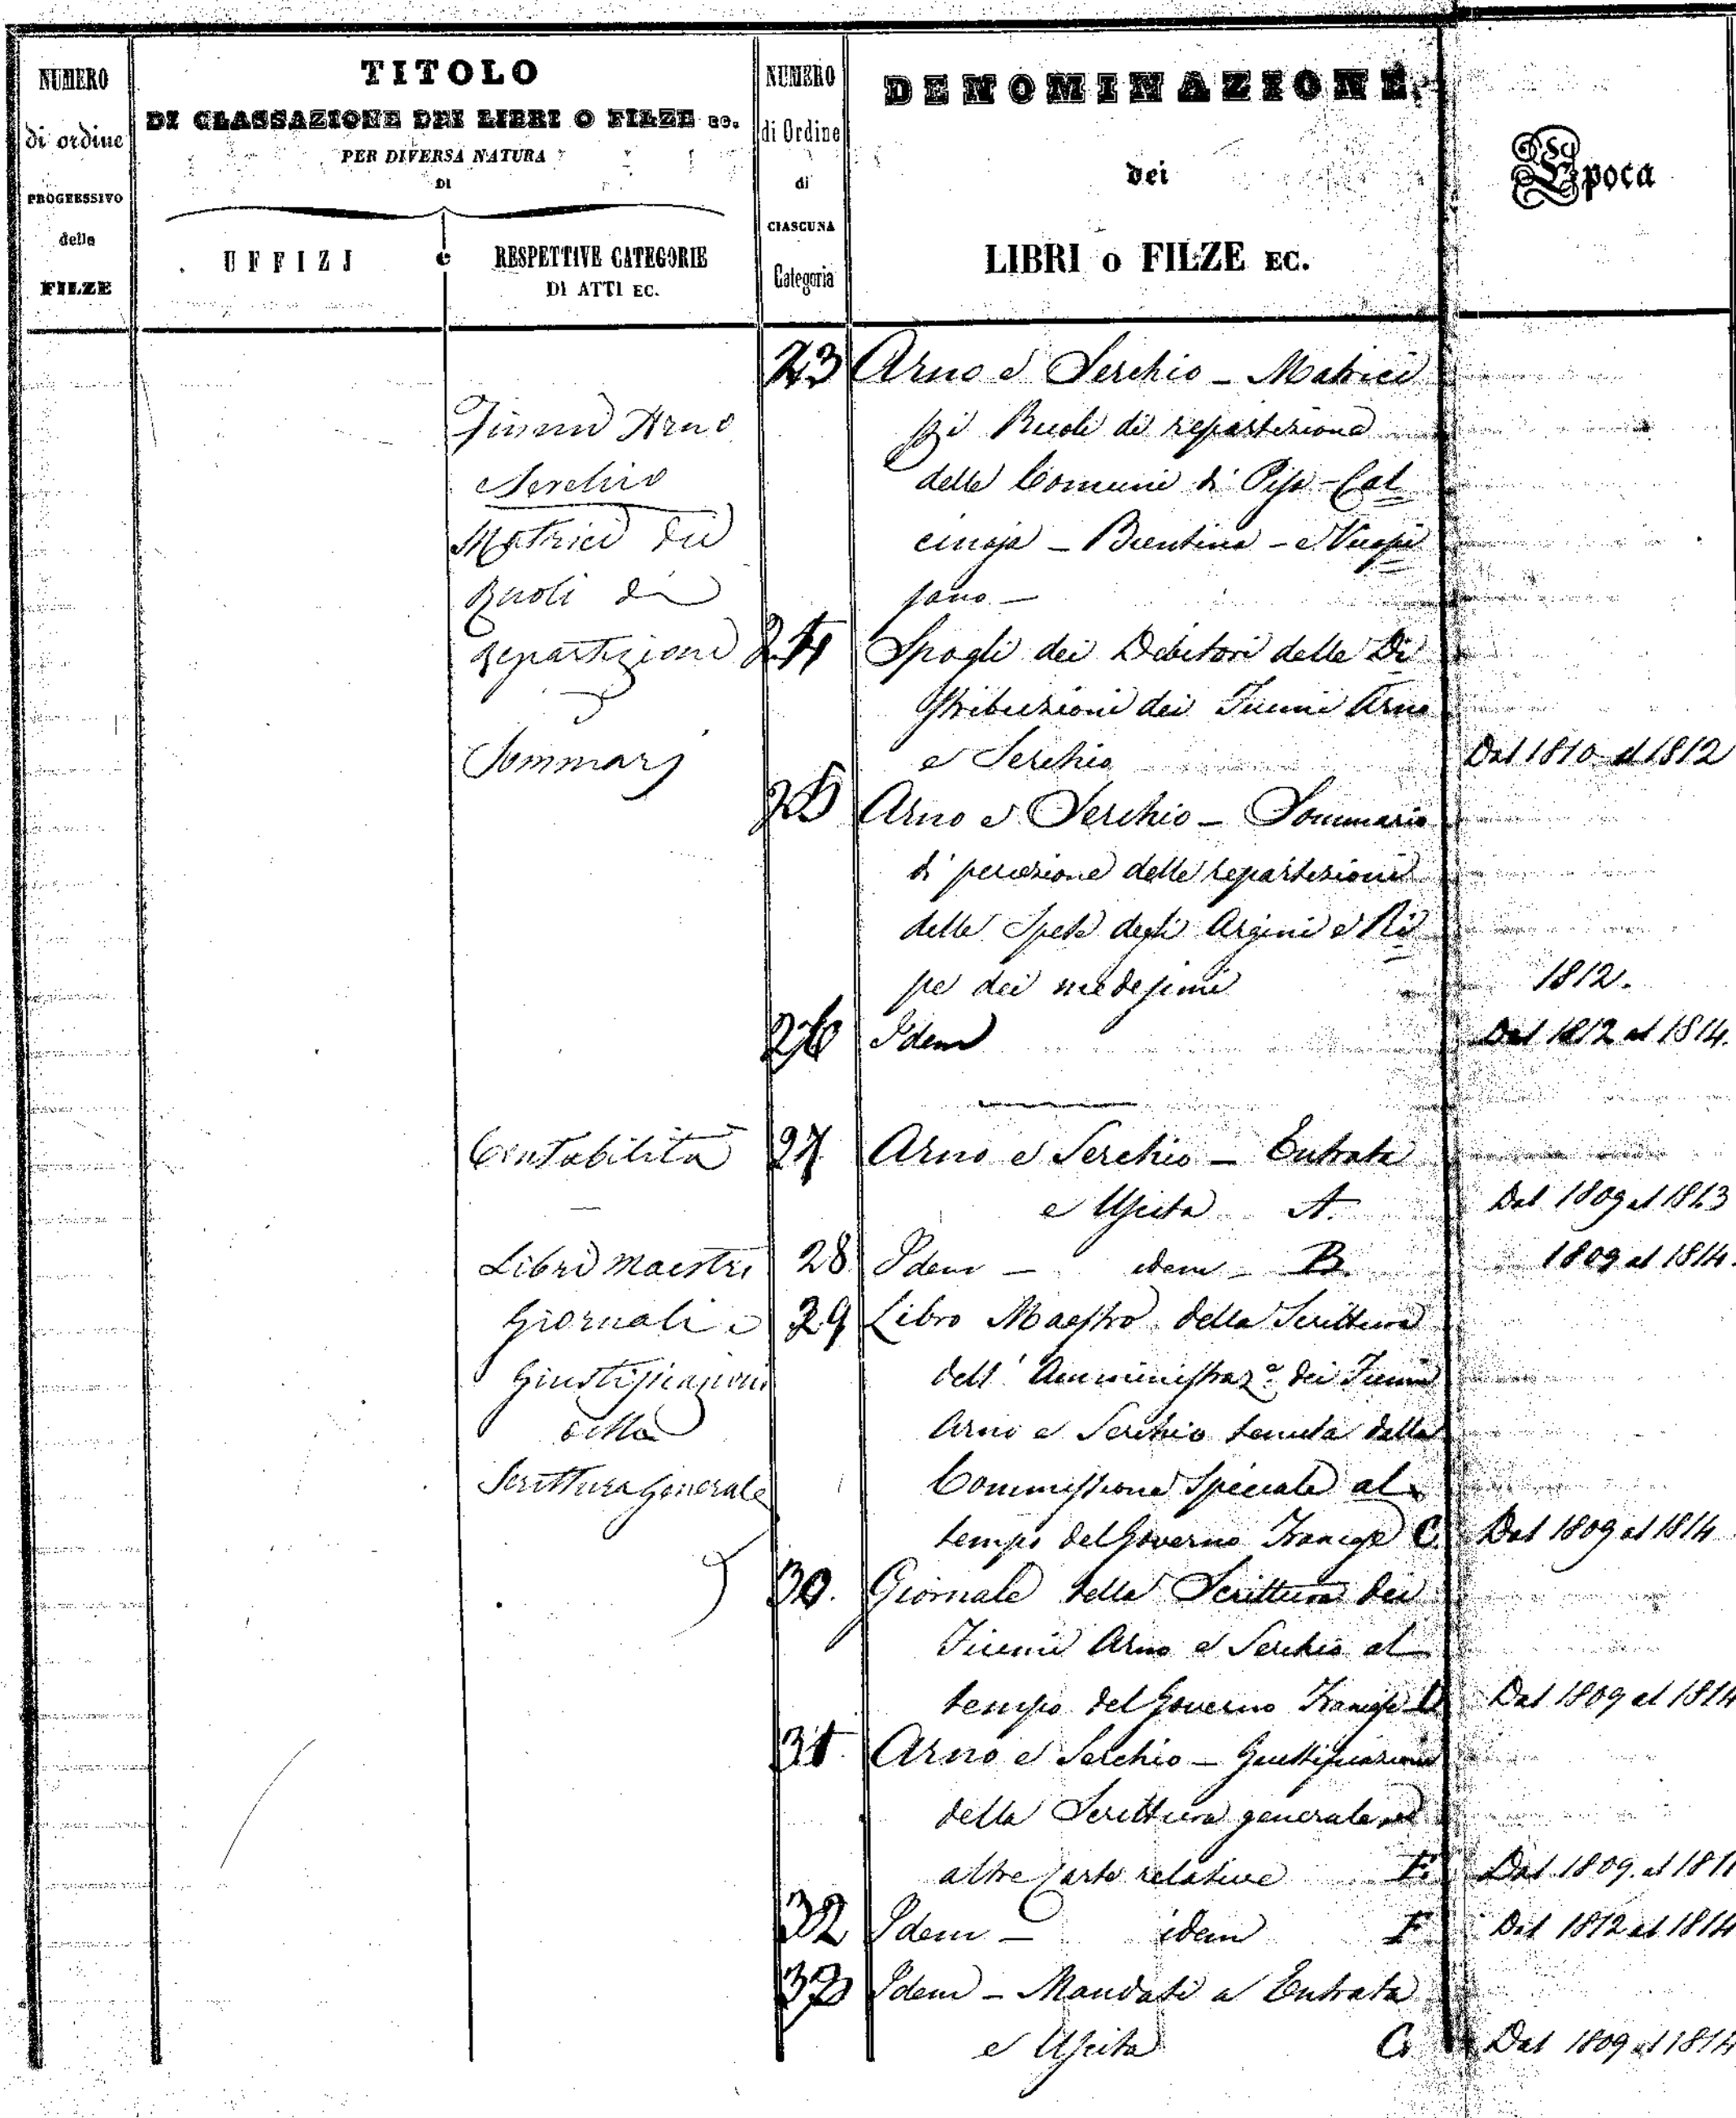 NUMERO
di ordine
PROGRESSIVO
delle
FILZE
TITOLO
DI CLASSAZIONE DEI LIBRI O FILZE EC.
PER DIVERSA NATURA
DI
UFFIZJ
e
RESPETTIVE CATEGORIE
DI ATTI EC.
NUMERO
di Ordine
di
CIASCUNA
Categoria
DENOMINAZIONE
dei
LIBRI o FILZE EC.
Epoca
23 Arno e Serchio - Matrici
Fiumi Arno
Serchio
Matrici dei
Ruoli di
repartizione
e
Sommarj
pei Ruoli di repartizione
delle Comuni di Pisa - Cal
cinaja - Bientina - e Vicopi
sano -
24 Spogli dei Debitori delle Di
stribuzioni dei Fiumi Arno
e Serchio Dal 1810 al 1812
25 Arno e Serchio - Sommario
di percezione delle repartizioni
delle Spese degli Argini e Ri
pe dei medesimi 1812.
26 Idem Dal 1812 al 1814.
Contabilità
Libri Maestri
Giornali e
Giustificazioni
della
Scrittura Generale
27 Arno e Serchio - Entrata
e Uscita A. Dal 1809 al 1813
28 Idem - idem - B. 1809 al 1814.
29 Libro Maestro della Scrittura
dell' Amministraz.e dei Fiumi
Arno e Serchio tenuta dalla
Commissione Speciale al
tempo del Governo Francese C. Dal 1809 al 1814
30. Giornale della Scrittura dei
Fiumi Arno e Serchio al
tempo del Governo Francese D Dal 1809 al 1814
31. Arno e Serchio - Giustificazioni
della Scrittura generale ed
altre Carte relative E. Dal 1809 al 1811
32 Idem - idem F. Dal 1812 al 1814
33 Idem - Mandati a Entrata
e Uscita G. Dal 1809 al 1814